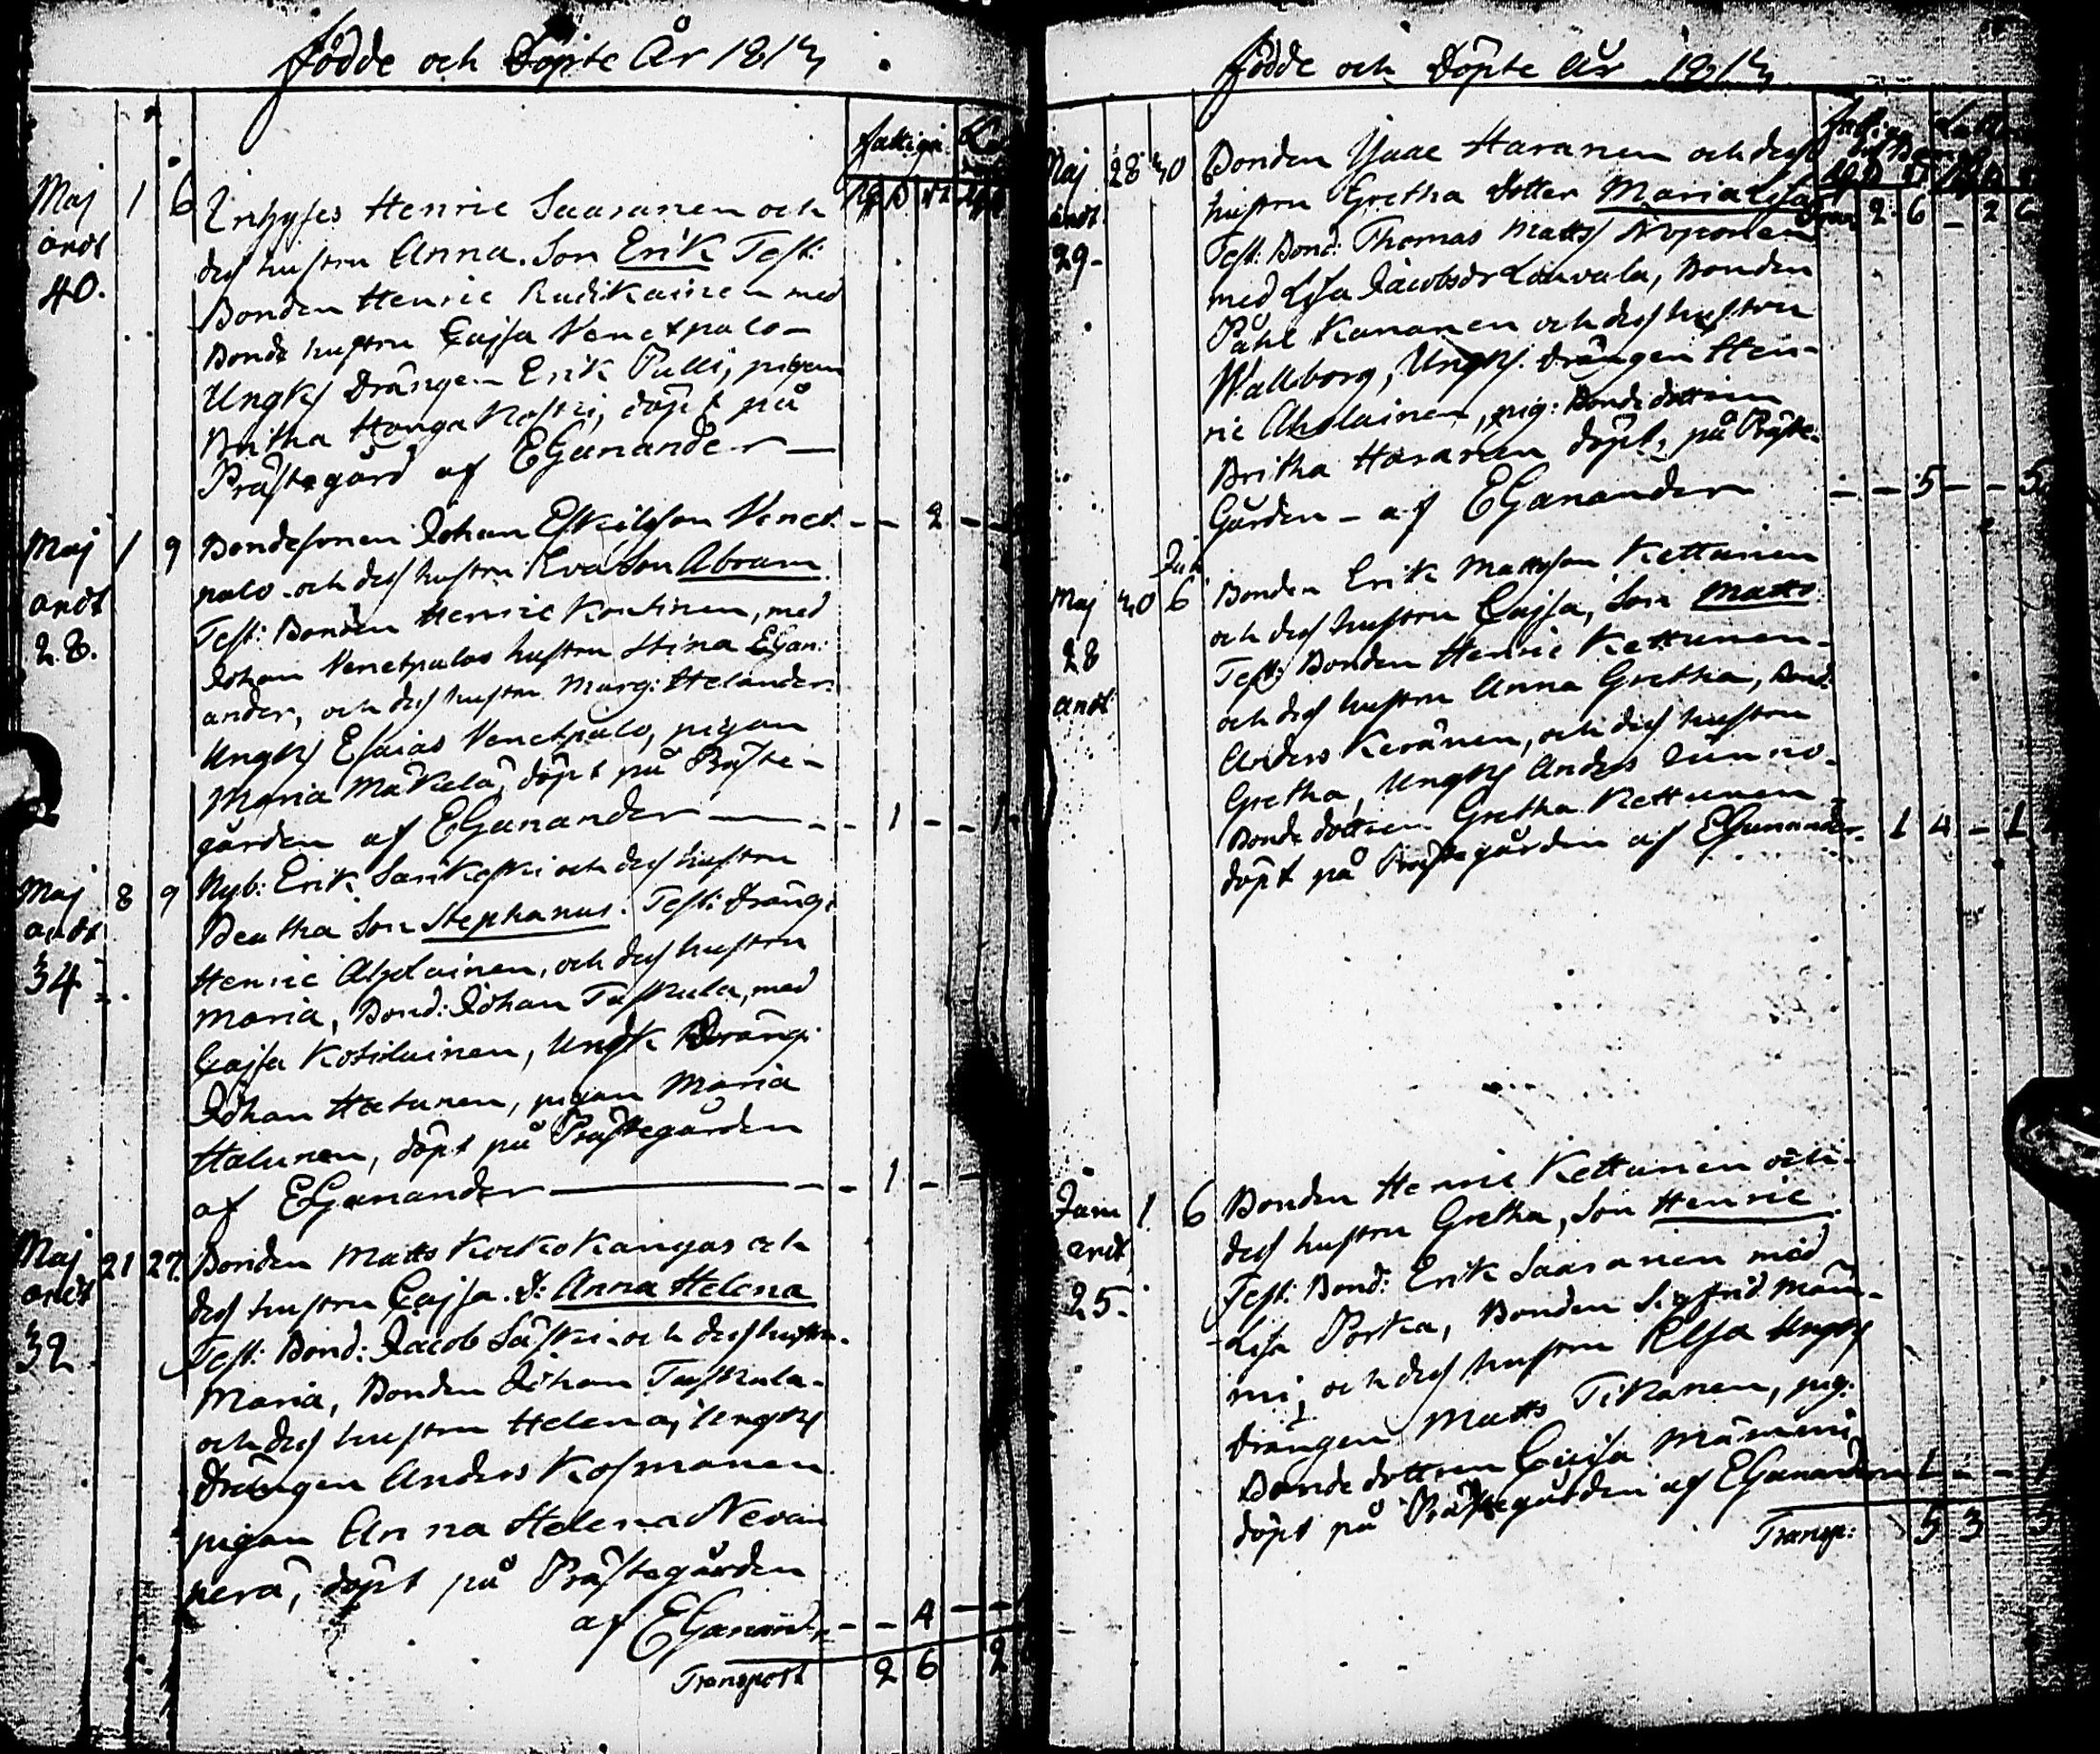 Födde och Döpte År 1813
fattiga
Maj 1 6 Inhyses Henric Saaranen och
andt dess hustru Anna. Son Erik Test:
40. Bonden Henric Rudikainen med
Bonde hustru Cajsa Venetpalo
Ungk Drängen Erik Pulli, pigan
Britha Hangakoski, döpt på
Prästegård af EGanander
Maj 1 9 Bondesonen Johan Eskilsson Venet- - - 2 - -
andt palo och dess hustru Eva Son Abram
28. Test: Bonden Henric Kontinen, med
Johan Venetpalos hustru Stina EGan:
ander, och dess hustru Marg: Helander.
Ungk Esaias Venetpalo, pigan
Maria Mäkelä, döpt på Präste-
gården af EGanander - - 1 - - 1
Maj 8 9 Nyb: Erik Särkoski och dess hustru
andt Beatha Son Stephanus. Test: Dräng:
34 Henric Aholainen, och dess hustru
Maria, Bond: Johan Taskula, med
Cajsa Kosolainen, Ungk Dräng:
Johan Halunen, pigan Maria
Halunen, döpt på Prästegården
af EGanander - - 1 - -
Maj 21 27. Bonden Matts Kockokangas och
andt dess hustru Cajsa. D: Anna Helena
32 Test: Bond: Jacob Säski och dess hustru
Maria, Bonden Johan Taskula
och dess hustru Helena, Ungk
Drängen Anders Kosmanen
pigan Anna Helena Nevan
perä, döpt på Prästegården
af EGanand: - - 4 - -
Transport 2 6 2
Födde och Döpte År 1813
Maj 28 30 Bonden Isaac Haranen och dess
andt hustru Gretha Dotter Maria Lisa 2 6 - 2 6
29- Test: Bond: Thomas Matts Noponen
med Lisa Jacobsdr Louvula, Bonden
Påhl Kananen och dess hustru
Wallborg, Ungk. Drängen Hen-
ric Aholainen, pig: Bondedottren
Britha Haranen döpt, på Präste-
Gården - af EGanander - - 5 - - 5
Juni
Maj 30 6 Bonden Erik Mattsson Kettunen
28 och dess hustru Cajsa, Son Matts
andt Test: Bonden Henric Kettunen
och dess hustru Anna Gretha, Bond:
Anders Keränen, och dess hustru
Gretha, Ungk Anders Junno
Bonde dottren Gretha Kettunen
döpt på Prästegården af EGanander. 1 4 - 1
Juni 1 6 Bonden Henric Kettunen och
andt dess hustru Gretha, Son Henric
25. Test: Bond: Erik Saaranen med
Lisa Porka, Bonden Sigfrid Mäm-
mi, och dess hustru Elsa Ungk
Drängen Matts Tikanen, pig:
Bonde dottren Cajsa Mämmi
döpt på Prästegården af EGanander 1 - - 1
Transp: 5 3 5